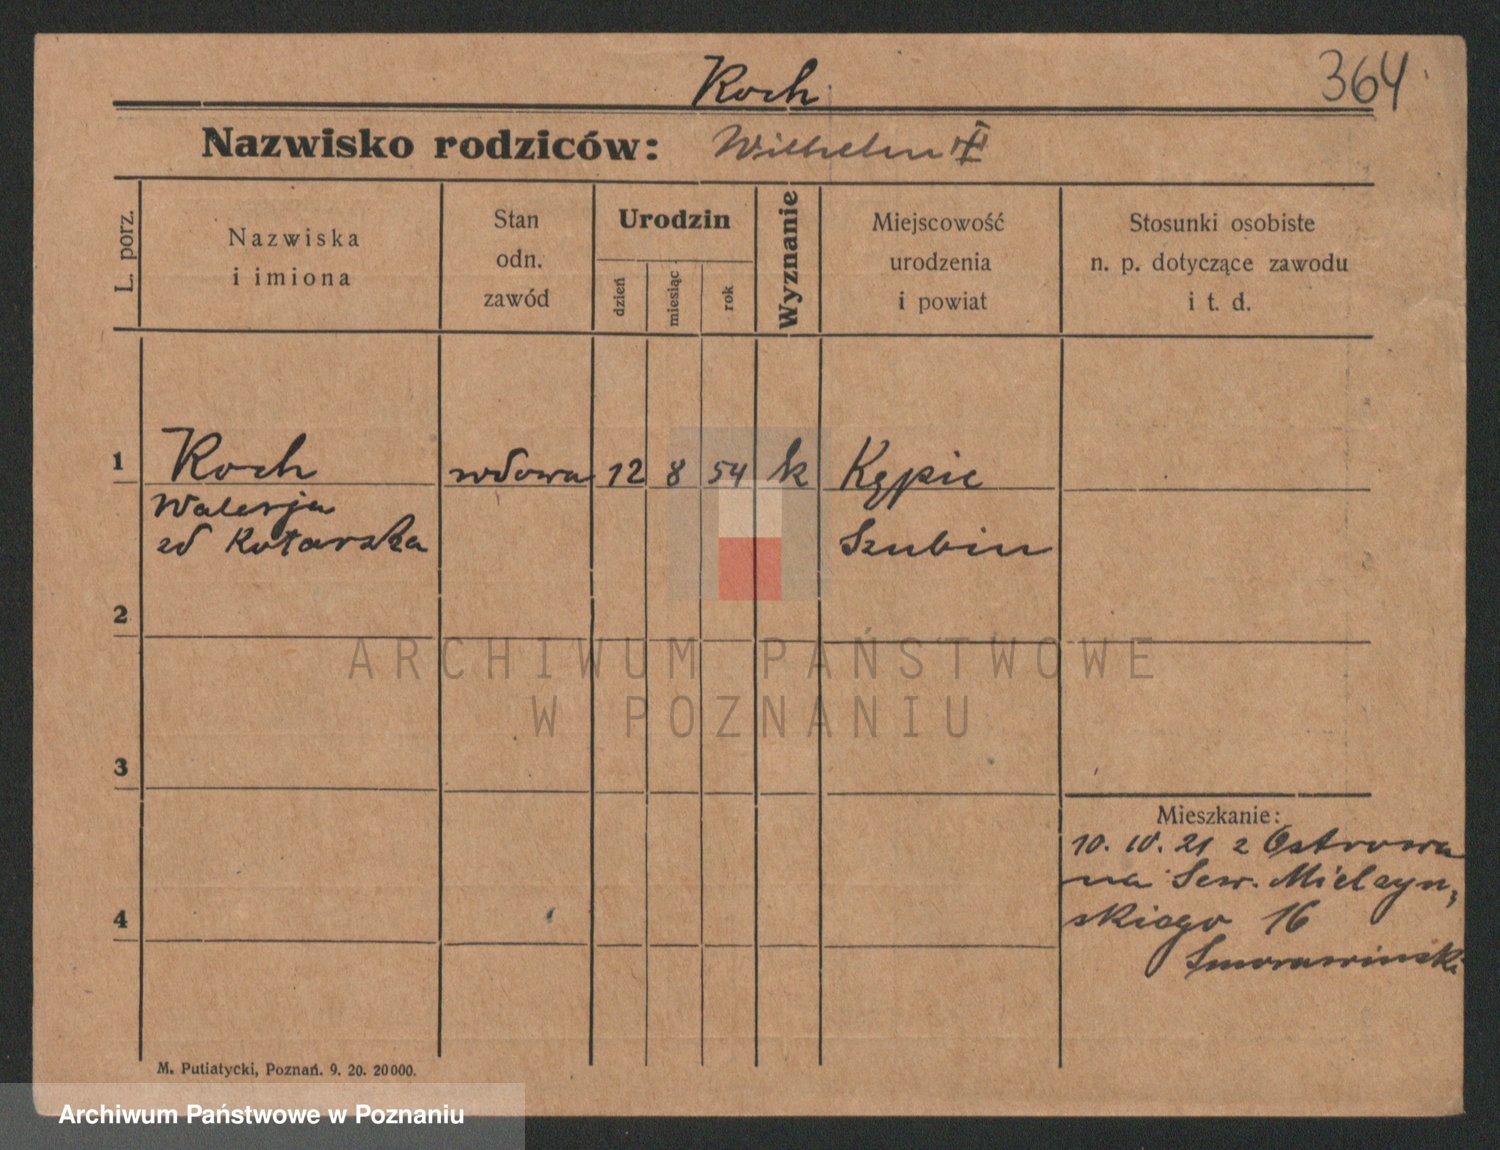 Koch
364
Nazwisko rodziców: Wilhelm
L. porz.
Nazwiska
i imiona
Stan
odn.
zawód
Urodzin
dzień
miesiąc
rok
Wyznanie
Miejscowość
urodzenia
i powiat
Stosunki osobiste
n. p. dotyczące zawodu
i t. d.
1
Koch
wdowa
12
8
54
k
Kępie
Walerja
zd Kotarska
Szubin
2
ARCHIWUM PAŃSTWOWE
W POZNANIU
3
Mieszkanie:
10. 10. 21 z Ostrowa
na Sew. Mielzyn-
skiego 16
Smorawinski
4
M. Putiatycki, Poznań. 9. 20. 20000.
Archiwum Państwowe w Poznaniu